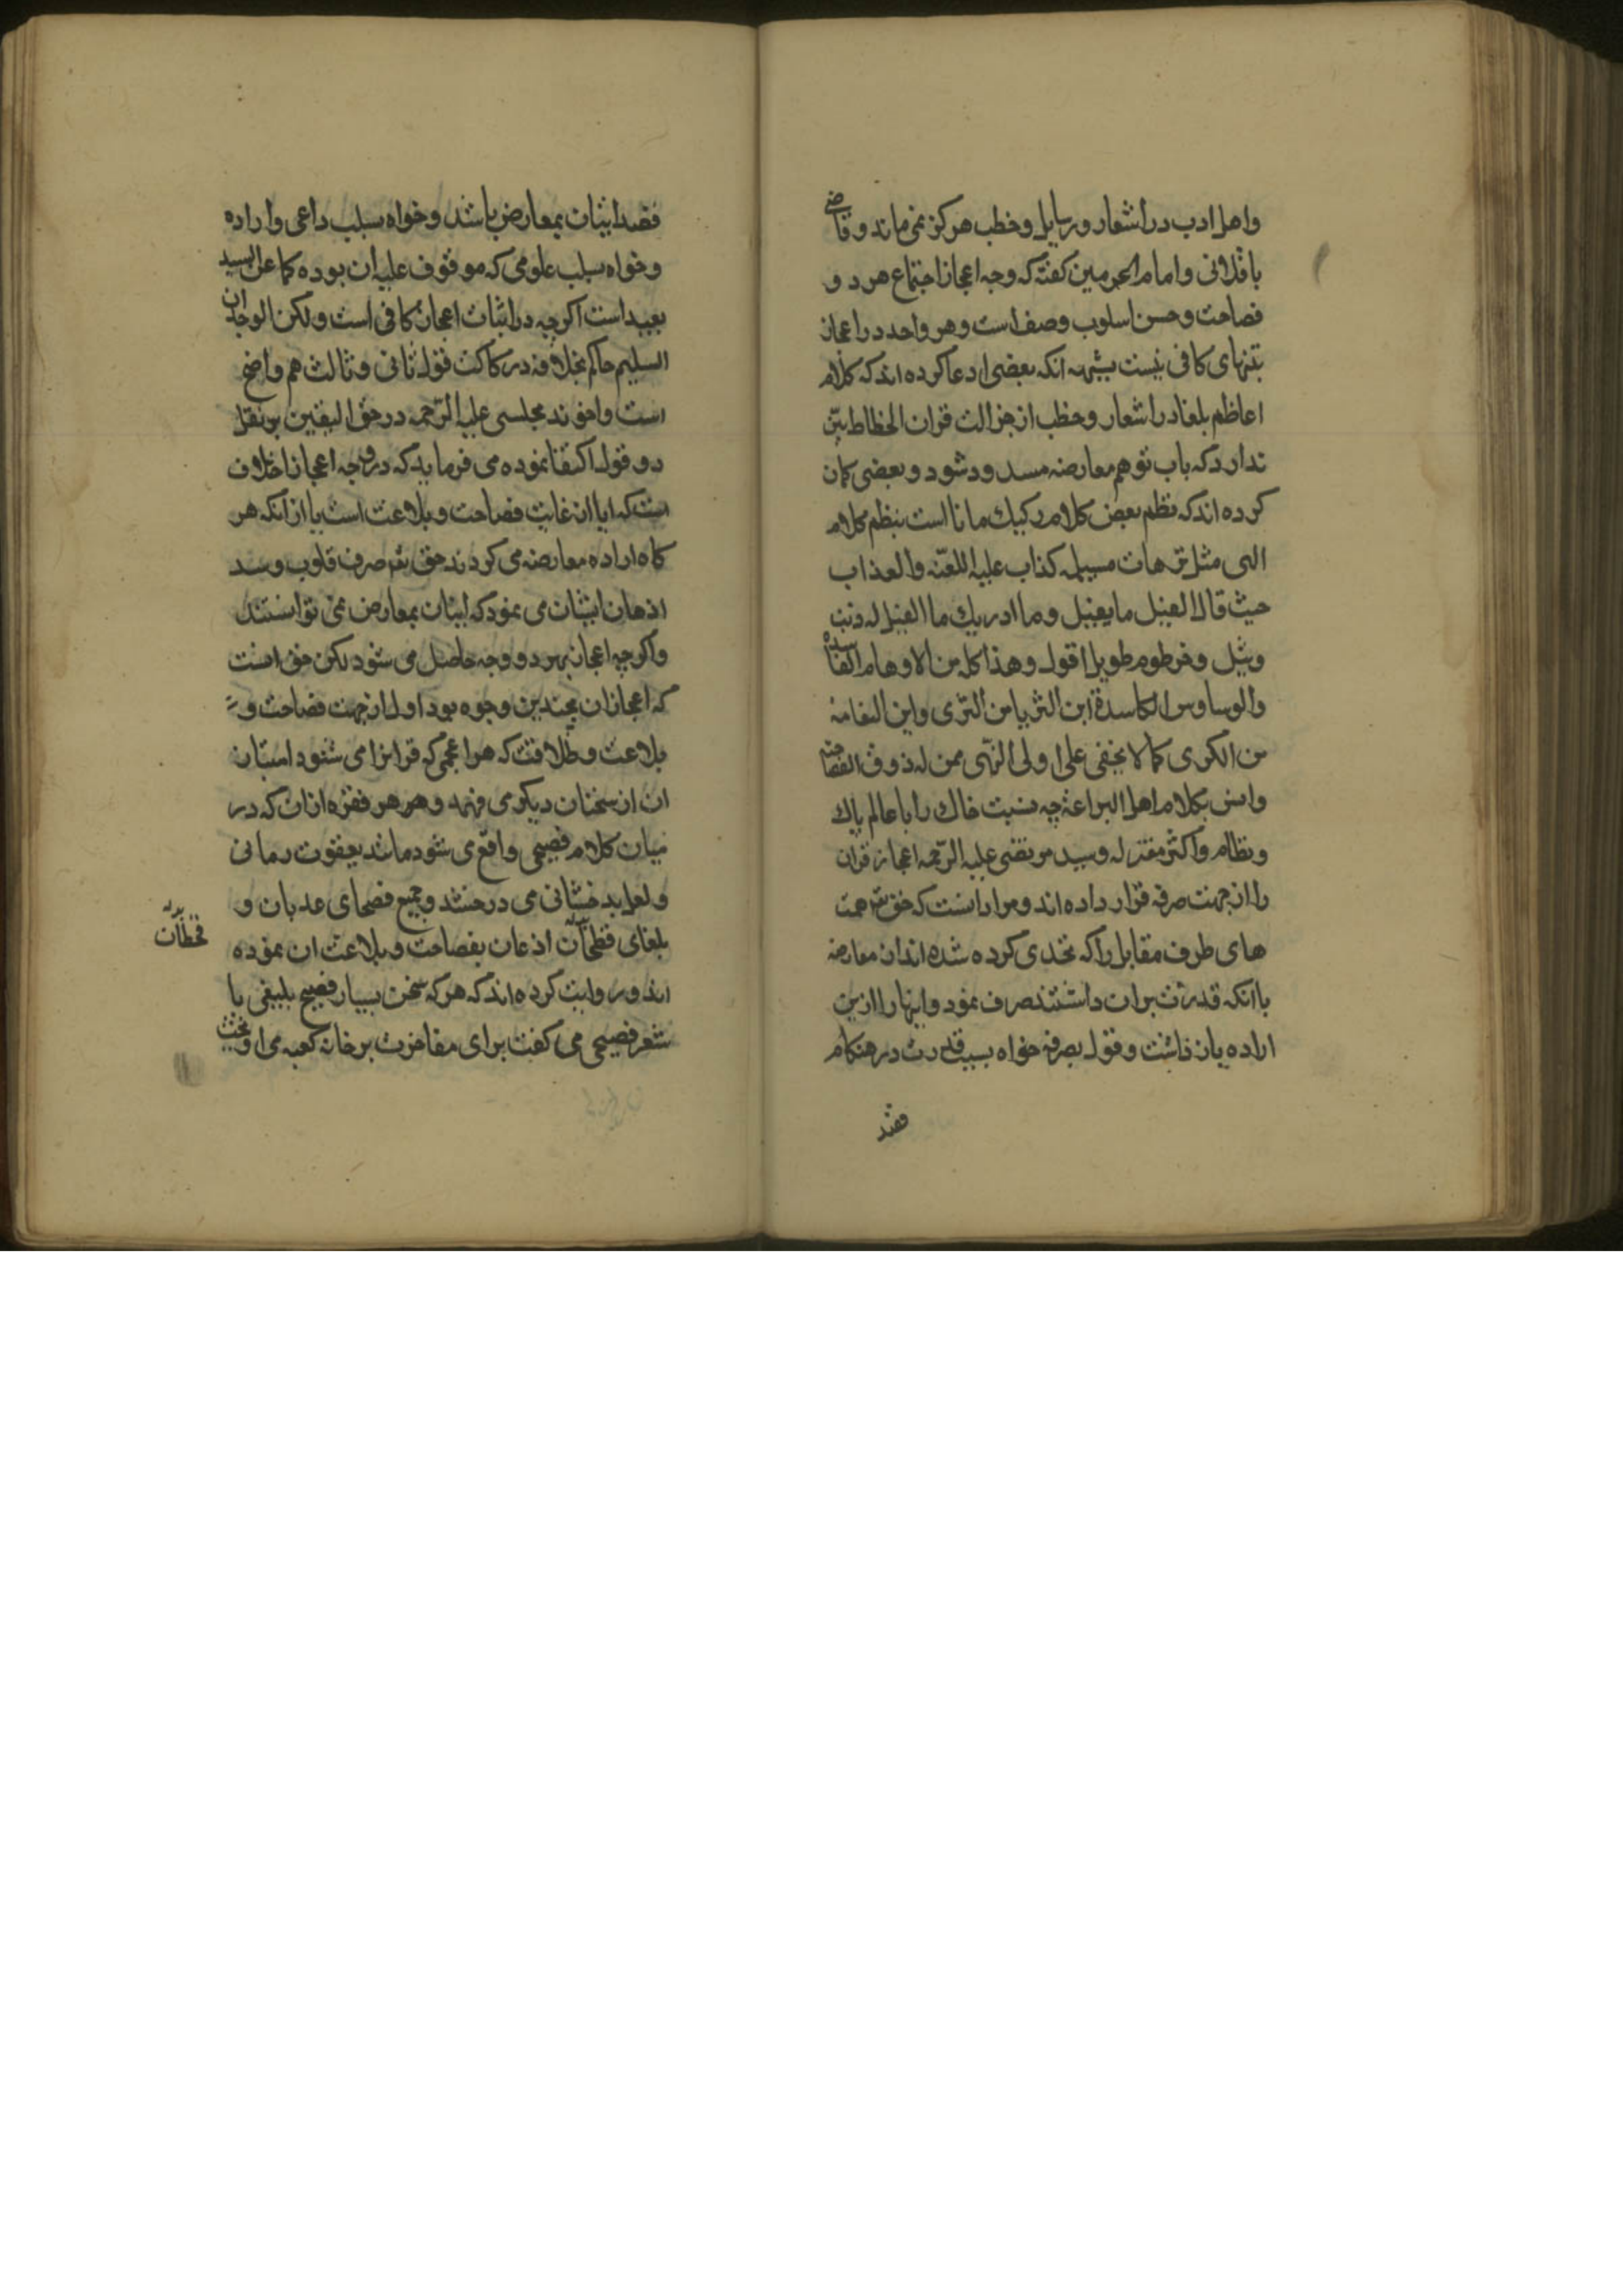 واهل ادب در اشعار و رسایل و خطب هرکز نمی ماند و قاضی
باقلانی و امام الحرمین کفته که وجه اعجاز اجتماع هر دو
فصاحت و حسن اسلوب وصف است و هر واحد در اعجاز
بتنهای کافی نیست بشبهه انکه بعضی ادعا کرده اند که کلام
اعاظم بلغا در اشعار و خطب از جزالت قران انحطاط بیّن
ندارد که باب توهم معارضه مسدود شود و بعضی کمان
کرده اند که نظم بعض کلام رکیك مانا است بنظم کلام
الهی مثل ترهات مسیلمه کذاب علیه اللعنه والعذاب
حیث قال الفیل ما الفیل وما ادریك ما الفیل له ذنب
وثیل وخرطوم طویل اقول وهذا کله من الاوهام الفاسده
والوساوس الکاسدة این الثریا من الثری واین النعامه
من الکری کما لا یخفی علی اولی النهی ممن له ذوق الفصاحه
وانس بکلام اهل البراعه چه نسبت خاك را با عالم پاك
ونظام و اکثر معتزله و سید مرتضی علیه الرّحمه اعجاز قران
را از جهت صرفه قرار داده اند و مراد انست که حق تعم همت
های طرف مقابل را که تحدی کرده شده اند از معارضه
با انکه قدرت بران داشتند صرف نمود و اینها را ازین
اراده بازداشت و قول بصرفه خواه بسبب قدرت در هنکام
قصد
قصد ایشان بمعارض باشد و خواه بسلب داعی و اراده
و خواه بسلب علومی که موقوف علیه ان بوده کما عن السید
بعید است اکرچه در اثبات اعجاز کافی است ولکن الوجدان
السلیم حاکم بخلافه در رکاکت قول ثانی و ثالث هم واضح
است و اخوند مجلسی علیه الرّحمه در حق الیقین بر نقل
دو قول اکتفا نموده می فرماید که در وجه اعجاز اختلاف
است که ایا از غایت فصاحت و بلاغت است یا از انکه هر
کاه اراده معارضه می کردند حق تعم صرف قلوب و سد
اذهان ایشان می نمود که اتیان بمعارض نمی توانستند
و اکرچه اعجاز بهر دو وجه حاصل می شود لکن حق انست
که اعجاز ان بچندین وجوه بود اول از جهت فصاحت و
بلاغت و طلاقت که هر اعجمی که قرانرا می شنود امتیاز
ان از سخنان دیکر می فهمد و هر هر فقره ازان که در
میان کلام فصیحی واقع می شود مانند یعقوت رمانی
و لعل بدخشانی می درخشد و جمیع فصحای عدبان و
بلغای قطحان اذعان بفصاحت و بلاغت ان نموده
اند و روایت کرده اند که هر که سخن بسیار فصیح بلیغی یا
شعر فصیحی می کفت برای مفاخرت بر خانه کعبه می اویخت
قحطان